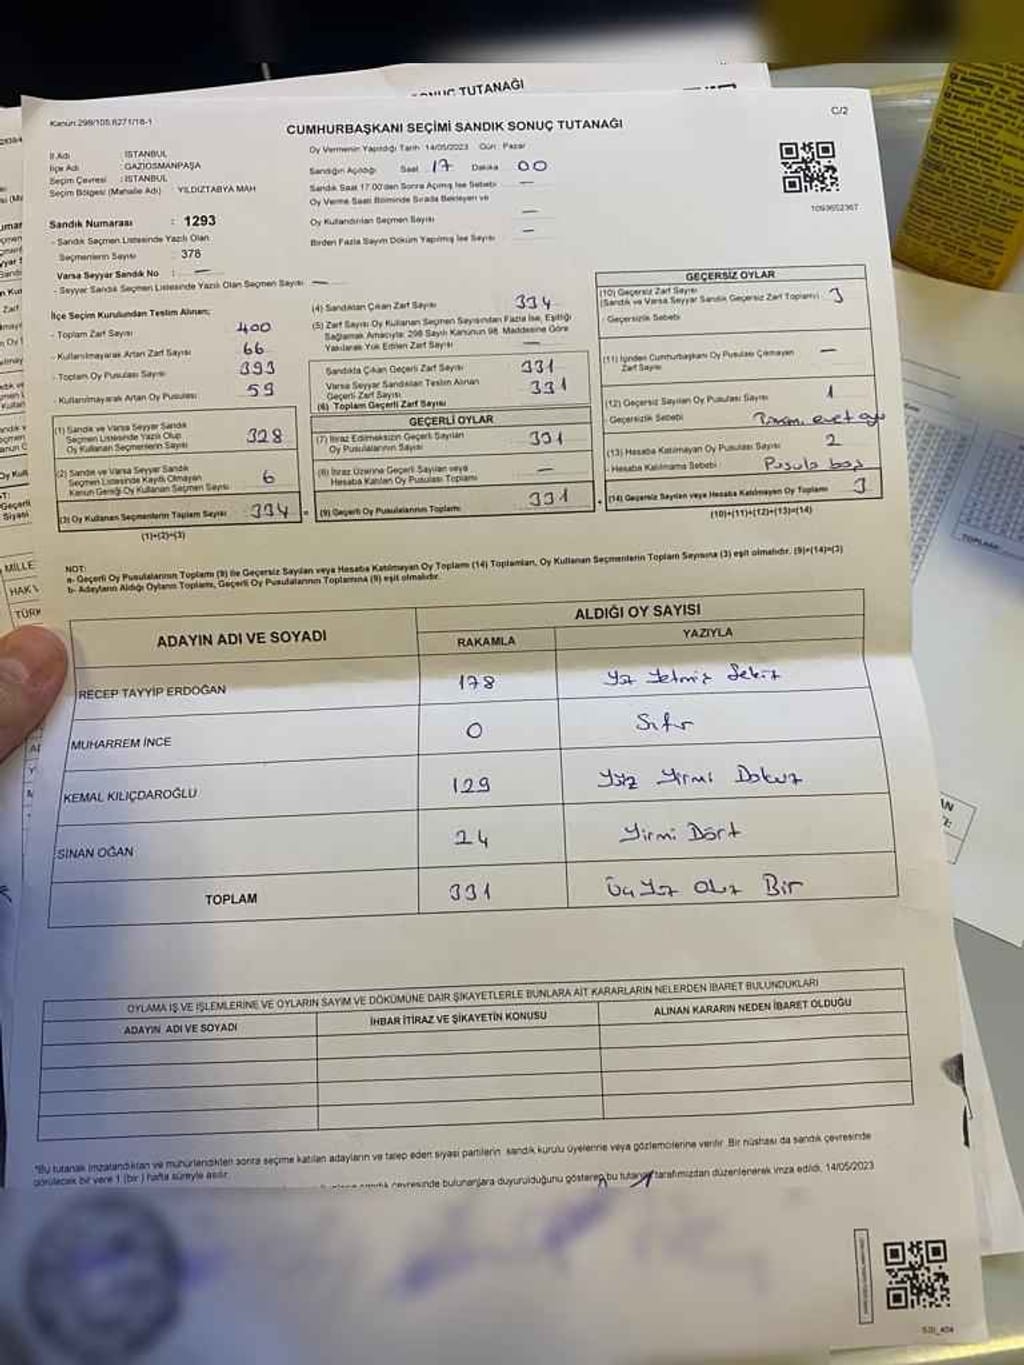 SONUÇ TUTANAĞI
Kanun:298/105.6271/18-1
C/2
CUMHURBAŞKANI SEÇİMİ SANDIK SONUÇ TUTANAĞI
İl Adı : İSTANBUL
İlçe Adı : GAZİOSMANPAŞA
Seçim Çevresi : İSTANBUL
Seçim Bölgesi (Mahalle Adı) : YILDIZTABYA MAH
Oy Vermenin Yapıldığı Tarih 14/05/2023 Gün: Pazar
Sandığın Açıldığı Saat 17 Dakika 00
Sandık Saat 17.00'den Sonra Açılmış İse Sebebi —
Oy Verme Saati Bitiminde Sırada Bekleyen ve
Oy Kullandırılan Seçmen Sayısı —
Birden Fazla Sayım Döküm Yapılmış İse Sayısı —
1093652367
Sandık Numarası : 1293
- Sandık Seçmen Listesinde Yazılı Olan
Seçmenlerin Sayısı : 378
Varsa Seyyar Sandık No : —
- Seyyar Sandık Seçmen Listesinde Yazılı Olan Seçmen Sayısı —
İlçe Seçim Kurulundan Teslim Alınan;
- Toplam Zarf Sayısı 400
- Kullanılmayarak Artan Zarf Sayısı 66
- Toplam Oy Pusulası Sayısı 393
- Kullanılmayarak Artan Oy Pusulası 59
(1) Sandık ve Varsa Seyyar Sandık
Seçmen Listesinde Yazılı Olup
Oy Kullanan Seçmenlerin Sayısı 328
(2) Sandık ve Varsa Seyyar Sandık
Seçmen Listesinde Kayıtlı Olmayan
Kanun Gereği Oy Kullanan Seçmen Sayısı 6
(3) Oy Kullanan Seçmenlerin Toplam Sayısı 334
(1)+(2)=(3)
(4) Sandıktan Çıkan Zarf Sayısı 334
(5) Zarf Sayısı Oy Kullanan Seçmen Sayısından Fazla İse, Eşitliği
Sağlamak Amacıyla; 298 Sayılı Kanunun 98. Maddesine Göre
Yakılarak Yok Edilen Zarf Sayısı —
Sandıkta Çıkan Geçerli Zarf Sayısı 331
Varsa Seyyar Sandıktan Teslim Alınan
Geçerli Zarf Sayısı 331
(6) Toplam Geçerli Zarf Sayısı
GEÇERLİ OYLAR
(7) İtiraz Edilmeksizin Geçerli Sayılan
Oy Pusulalarının Sayısı 331
(8) İtiraz Üzerine Geçerli Sayılan veya
Hesaba Katılan Oy Pusulası Toplamı —
(9) Geçerli Oy Pusulalarının Toplamı 331
GEÇERSİZ OYLAR
(10) Geçersiz Zarf Sayısı
(Sandık ve Varsa Seyyar Sandık Geçersiz Zarf Toplamı) 3
- Geçersizlik Sebebi
(11) İçinden Cumhurbaşkanı Oy Pusulası Çıkmayan
Zarf Sayısı —
(12) Geçersiz Sayılan Oy Pusulası Sayısı 1
- Geçersizlik Sebebi evet
(13) Hesaba Katılmayan Oy Pusulası Sayısı 2
- Hesaba Katılmama Sebebi Pusula boş
(14) Geçersiz Sayılan veya Hesaba Katılmayan Oy Toplamı 3
(10)+(11)+(12)+(13)=(14)
NOT:
a- Geçerli Oy Pusulalarının Toplamı (9) ile Geçersiz Sayılan veya Hesaba Katılmayan Oy Toplamı (14) Toplamları, Oy Kullanan Seçmenlerin Toplam Sayısına (3) eşit olmalıdır. (9)+(14)=(3)
b- Adayların Aldığı Oyların Toplamı, Geçerli Oy Pusulalarının Toplamına (9) eşit olmalıdır.
ADAYIN ADI VE SOYADI
ALDIĞI OY SAYISI
RAKAMLA YAZIYLA
RECEP TAYYİP ERDOĞAN 178 Yüz Yetmiş Sekiz
MUHARREM İNCE 0 Sıfır
KEMAL KILIÇDAROĞLU 129 Yüz Yirmi Dokuz
SİNAN OĞAN 24 Yirmi Dört
TOPLAM 331 Üç Yüz Otuz Bir
OYLAMA İŞ VE İŞLEMLERİNE VE OYLARIN SAYIM VE DÖKÜMÜNE DAİR ŞİKAYETLERLE BUNLARA AİT KARARLARIN NELERDEN İBARET BULUNDUKLARI
ADAYIN ADI VE SOYADI İHBAR İTİRAZ VE ŞİKAYETİN KONUSU ALINAN KARARIN NEDEN İBARET OLDUĞU
*Bu tutanak imzalandıktan ve mühürlendikten sonra seçime katılan adayların ve talep eden siyasi partilerin sandık kurulu üyelerine veya gözlemcilerine verilir. Bir nüshası da sandık çevresinde
görülecek bir yere 1 (bir) hafta süreyle asılır.
çevresinde bulunanlara duyurulduğunu gösteren bu tutanak tarafımızdan düzenlenerek imza edildi. 14/05/2023
MİLLE
HAK
TÜRK
TOPLAM